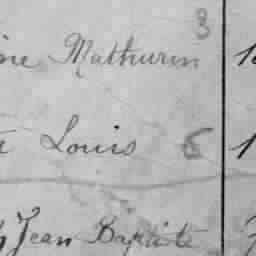 3
ine Mathurin 1
Louis 6 1
Jean Baptiste